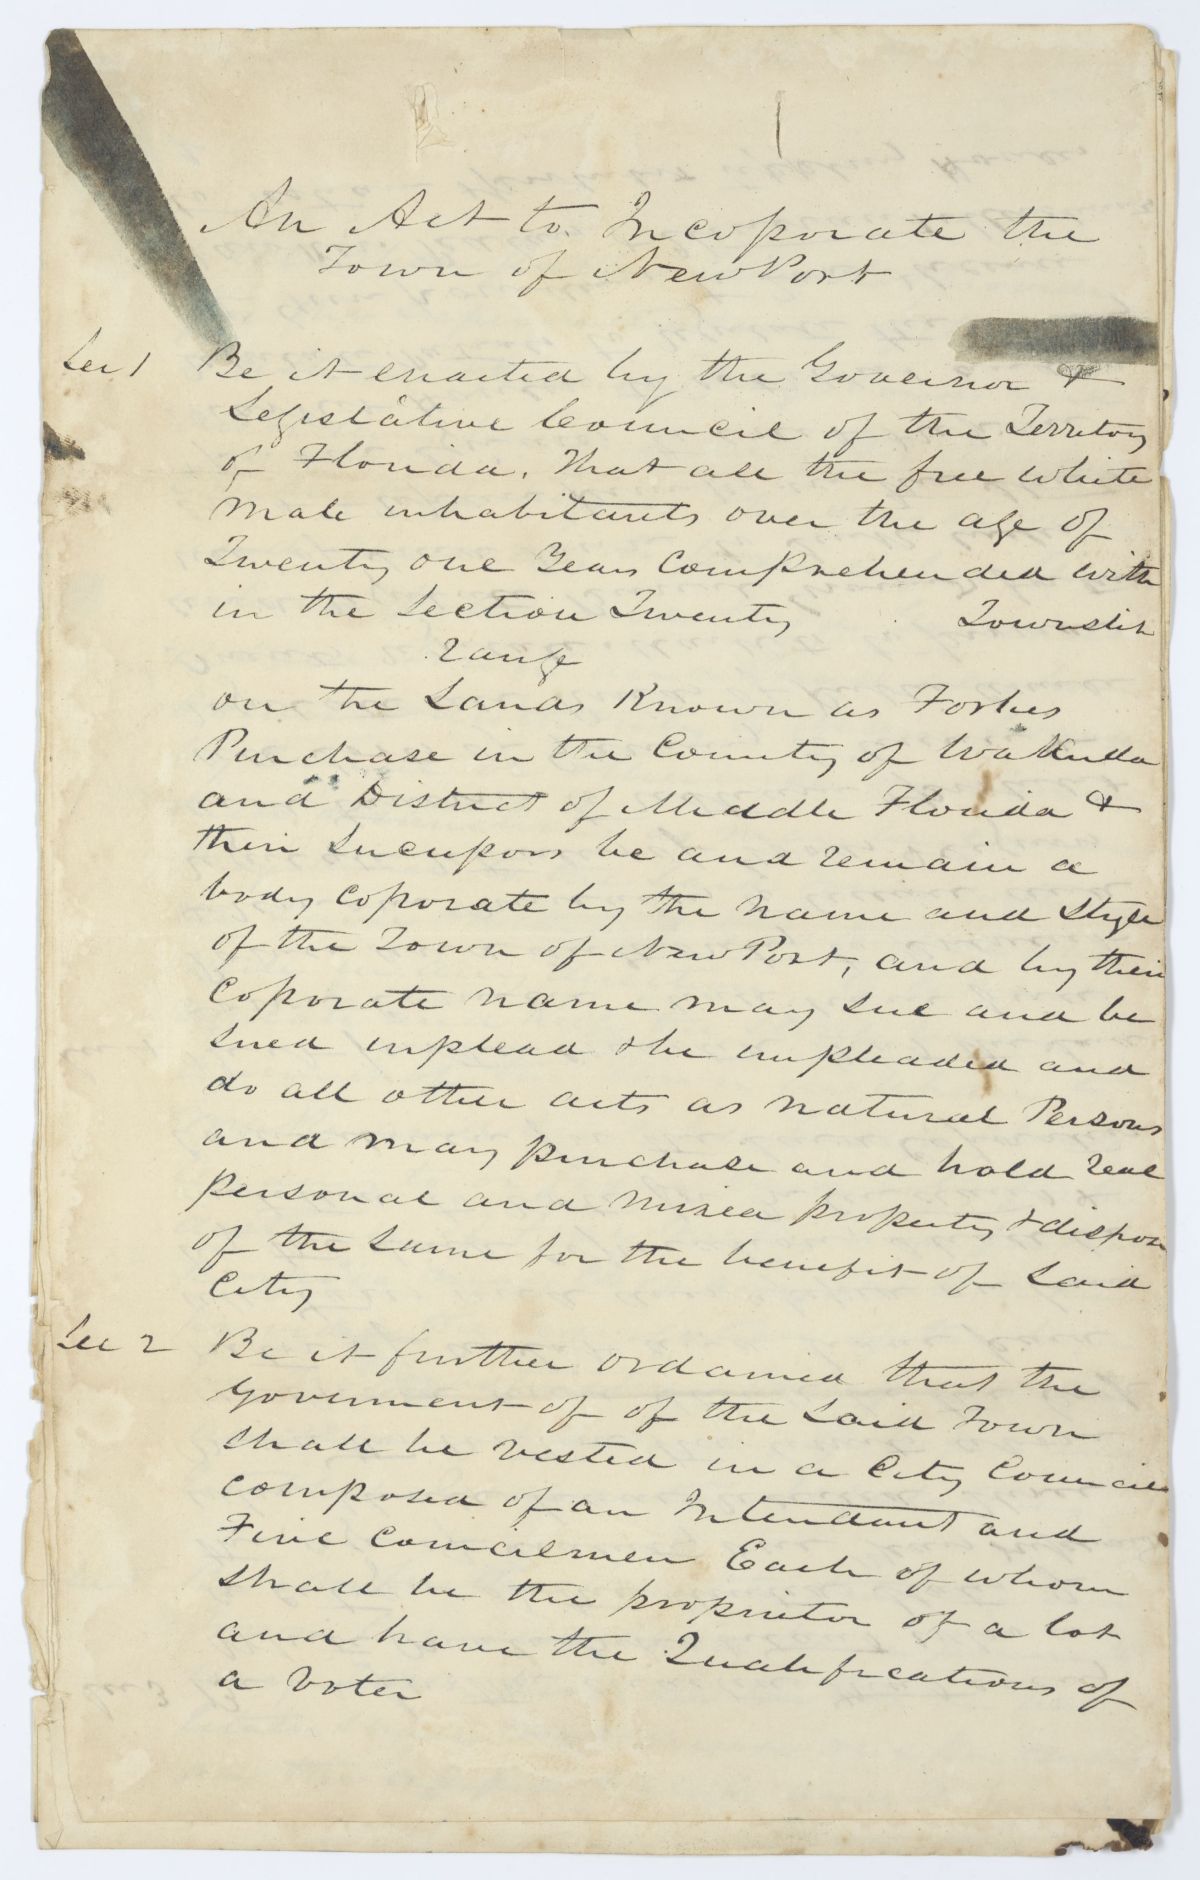 An Act to Incoporate the
Town of New Port
Sec 1 Be it enacted by the Governor &
Legislative Council of the Territory
of Florida, That all the free white
male inhabitants over the age of
Twenty one Years Comprehended with
in the Section Twenty Township
range
on the Lands Known as Forbes
Purchase in the County of Wakulla
and District of Middle Florida &
their Sucupors be and remain a
body Coporate by the name and Style
of the Town of New Port, and by their
Coporate name may sue and be
sued inplead & be impleaded and
do all other acts as natural Persons
and may purchase and hold real
personal and mixed property & dispose
of the same for the benefit of Said
City
Sec 2 Be it further ordained that the
Goverment of of the Said Town
shall be vested in a City Council
composed of an Intendant and
Five Councilmen Each of whom
shall be the proprietor of a lot
and have the Qualifications of
a voter